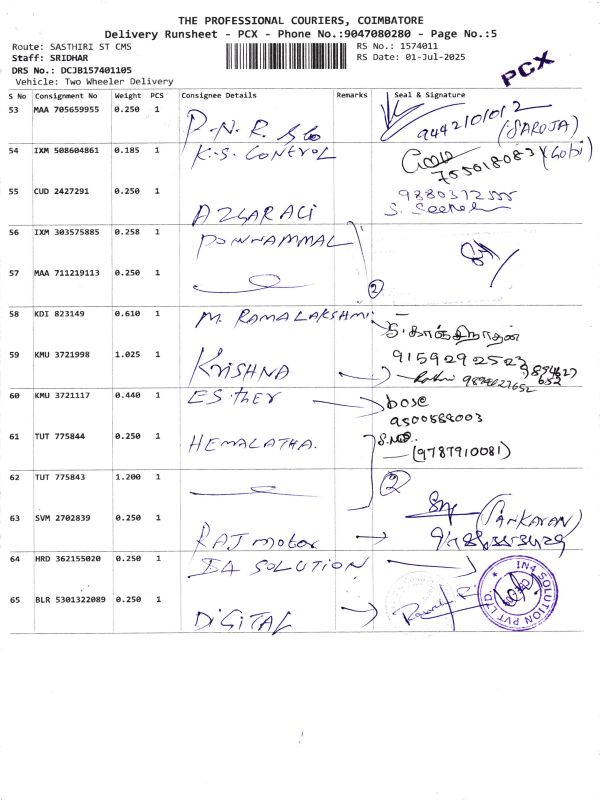 THE PROFESSIONAL COURIERS, COIMBATORE
Delivery Runsheet - PCX - Phone No.:9047080280 - Page No.:5
Route: SASTHIRI ST CMS
RS No.: 1574011
Staff: SRIDHAR
RS Date: 01-Jul-2025
DRS No.: DCJB157401105
Vehicle: Two Wheeler Delivery
PCX
S No Consignment No Weight PCS Consignee Details Remarks Seal & Signature
53 MAA 705659955 0.250 1 P.N.R. 9442101012 (SAROJA)
54 IXM 508604861 0.185 1 K.S. CONTROL (Gobi)
55 CUD 2427291 0.250 1 AZGAR ALI
56 IXM 303575885 0.258 1 PONNAMMAL
57 MAA 711219113 0.250 1 2
58 KDI 823149 0.610 1 M. RAMALAKSHMI
59 KMU 3721998 1.025 1 KRISHNA 9159292523
60 KMU 3721117 0.440 1 ESther bose
9500588003
61 TUT 775844 0.250 1 HEMALATHA. (9787910081)
62 TUT 775843 1.200 1 2
63 SVM 2702839 0.250 1 RAJ motor
64 HRD 362155020 0.250 1 I4 SOLUTION
IN4 SOLUTION PVT LTD
65 BLR 5301322089 0.250 1 DIGITAL